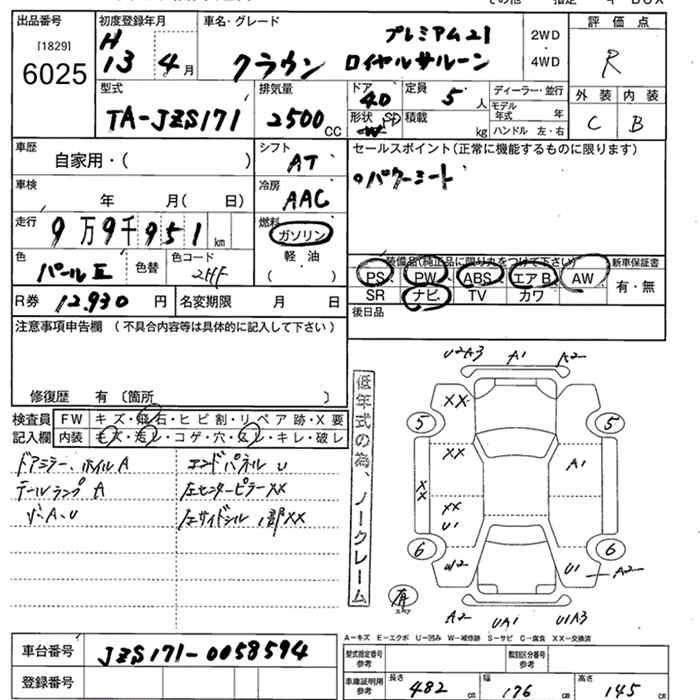 その他 指定
出品番号 初度登録年月 車名・グレード 評価点
[1829]
6025
H
13 4月
プレミアム21
クラウン ロイヤルサルーン
2WD
・
4WD
R
型式 排気量 ドア 定員 ディーラー・並行 外装 内装
TA-JZS171 2500CC 4D 5人
モデル年式 年
形状 SD 積載 kg ハンドル 左・右
C B
車歴 シフト セールスポイント(正常に機能するものに限ります)
自家用・( ) AT
。パワーシート
車検 冷房
年 月( 日) AAC
走行 燃料
9万9千951km ガソリン
色 色コード 軽油
パールⅡ 色替 2HF ( )
装備品(純正品に限り丸をつけて下さい) 新車保証書
PS PW ABS エアB AW 有・無
SR ナビ TV カワ
R券 12,930円 名変期限 月 日
後日品
注意事項申告欄 (不具合内容等は具体的に記入して下さい)
修復歴 有 〔箇所 〕
検査員 FW キズ・飛石・ヒビ割・リペア跡・X要
記入欄 内装 キズ・コゲ・穴・キレ・破レ
ドアミラー、ホイルA エンドパネルU
テールランプA 左センターピラーXX
左サイドシル XX
低年式の為、ノークレーム
U2A3 A1 A2
XX
5 5
XX A1
XX
XX
U1
6 6
W2 U1 A2
有
A2 UA1 U1A3
A-キズ E-エクボ U-凹み W-補修跡 S-サビ C-腐食 XX-交換済
車台番号 JZS171-0058594
型式指定番号 参考 類別区分番号 参考
登録番号
車庫証明用 参考 長さ 482cm 幅 176cm 高さ 145cm